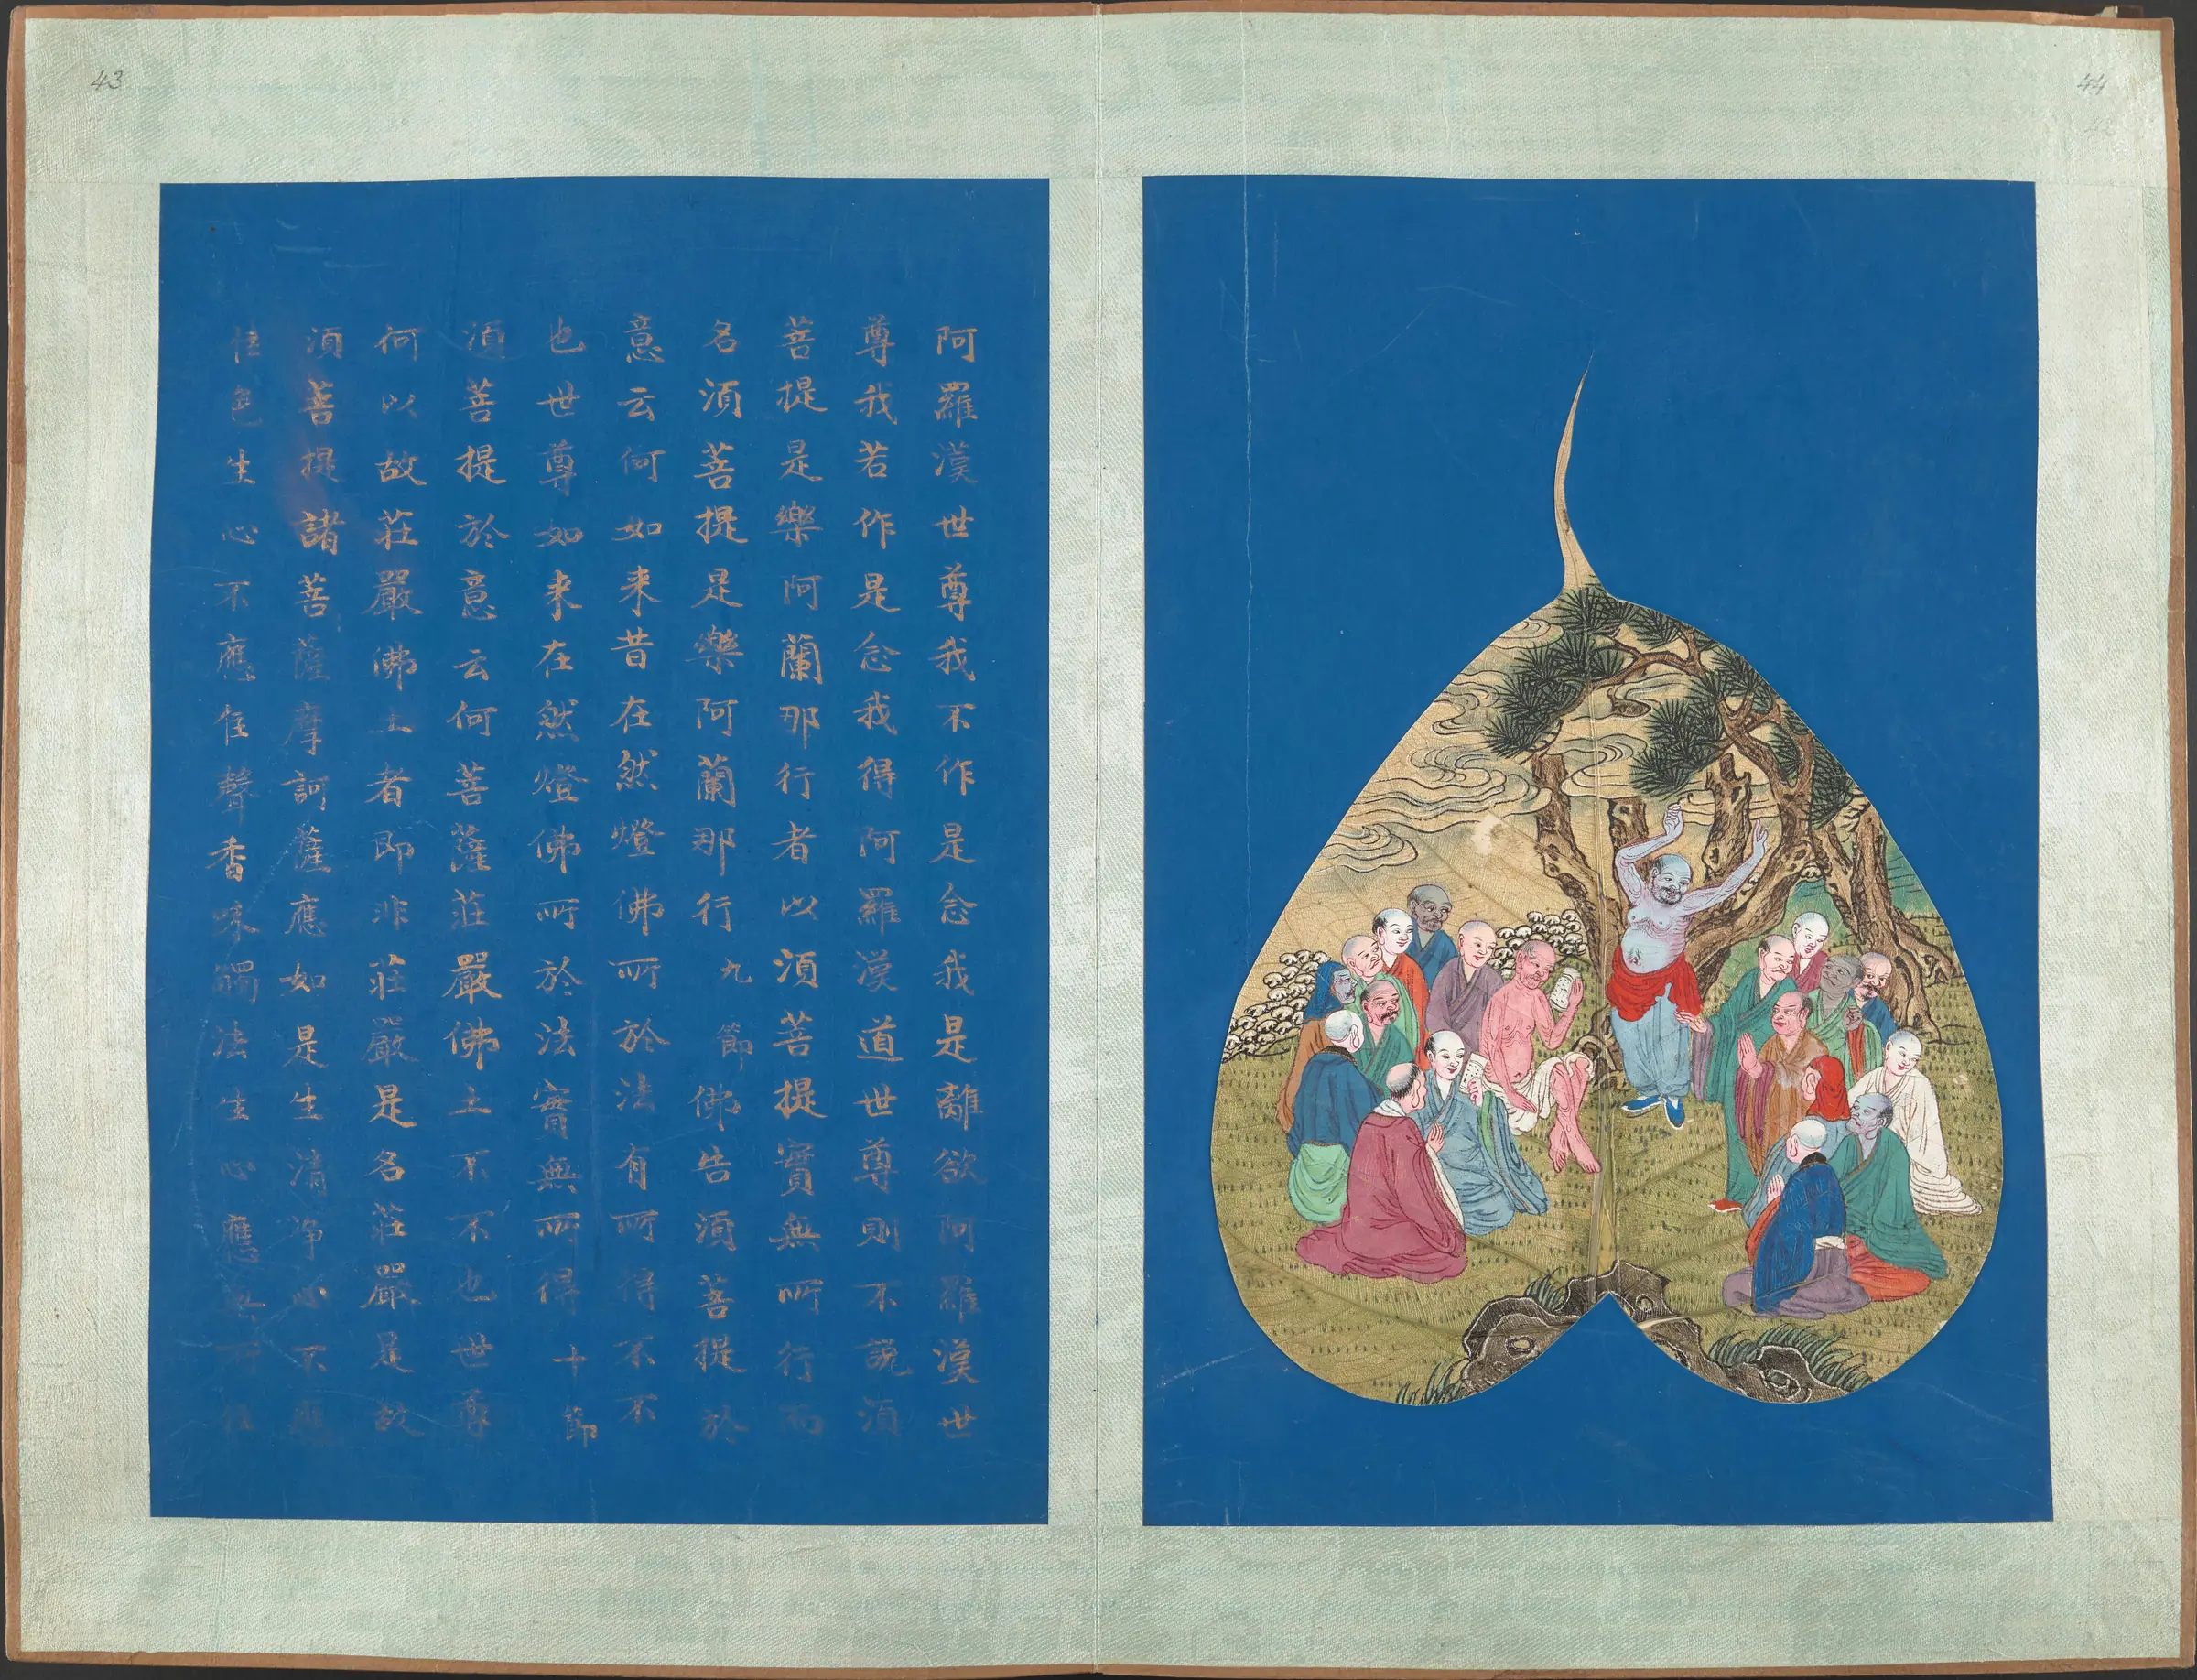 43
44
阿羅漢世尊我不作是念我是離欲阿羅漢世
尊我若作是念我得阿羅漢道世尊則不說須
菩提是樂阿蘭那行者以須菩提實無所行而
名須菩提是樂阿蘭那行 九節 佛告須菩提於
意云何如来昔在然燈佛所於法有所得不不
也世尊如来在然燈佛所於法實無所得 十節
須菩提於意云何菩薩莊嚴佛土不不也世尊
何以故莊嚴佛土者即非莊嚴是名莊嚴是故
須菩提諸菩薩摩訶薩應如是生清淨心不應
住色生心不應住聲香味觸法生心應無所住